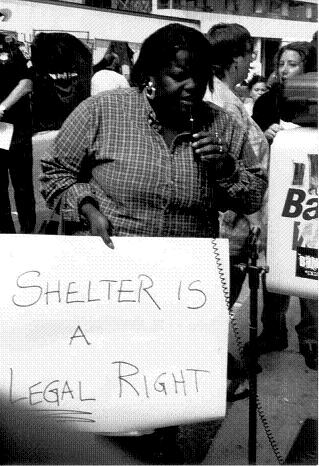 SHELTER IS
A
LEGAL RIGHT
Ba